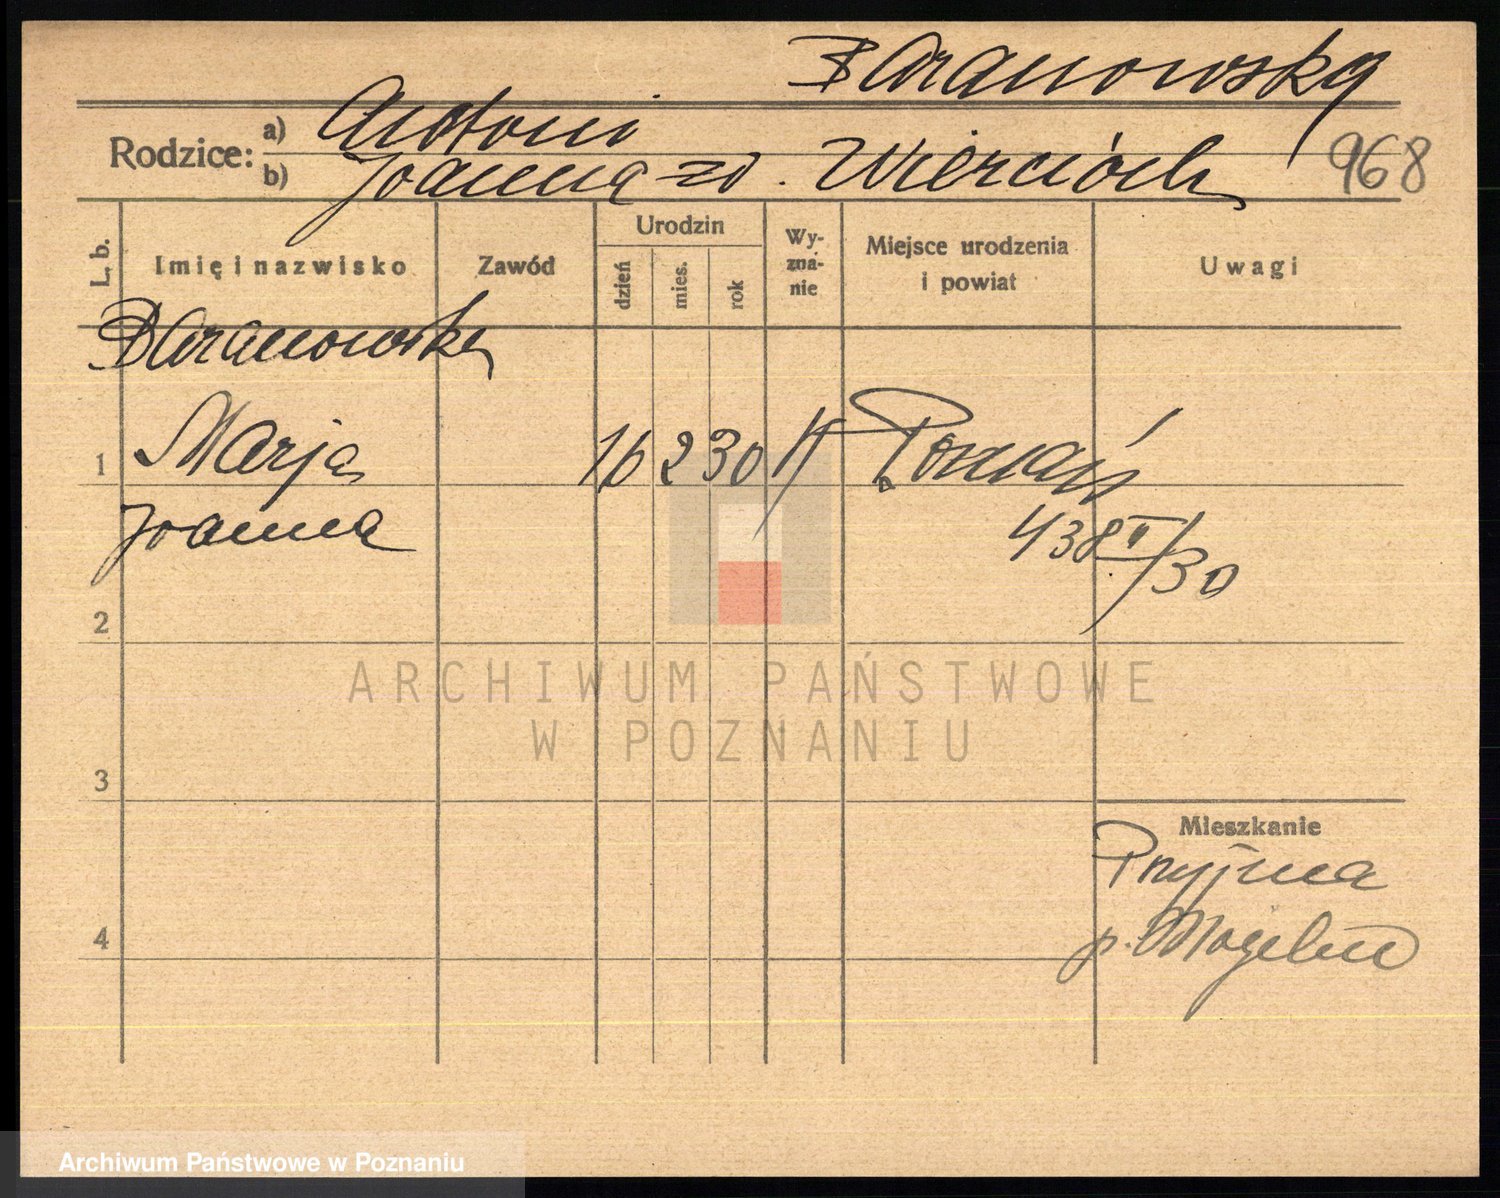 Baranowska
Rodzice: a) Antoni
b) Joanna zd. Wiercióch
968
L. b.
Imię i nazwisko
Zawód
Urodzin
dzień
mies.
rok
Wy-
zna-
nie
Miejsce urodzenia
i powiat
Uwagi
Baranowska
1 Marja 16 2 30 K Poznań
Joanna
438 II/30
2
ARCHIWUM PAŃSTWOWE
W POZNANIU
3
Mieszkanie
p. Mogilno
4
Archiwum Państwowe w Poznaniu